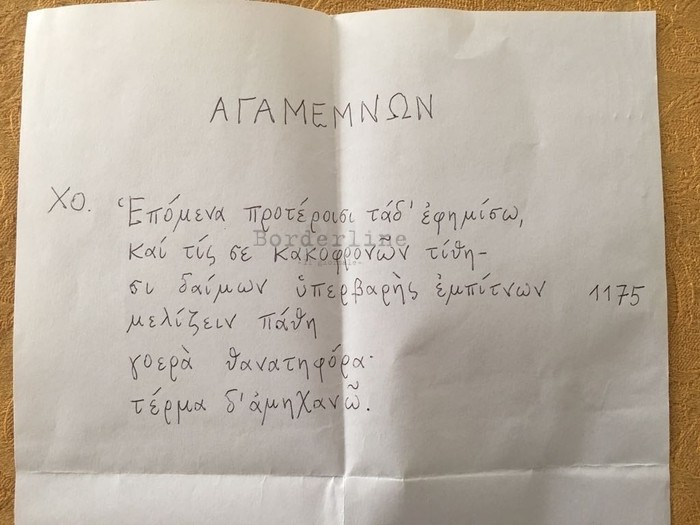 ΑΓΑΜΕΜΝΩΝ
ΧΟ. Ἑπόμενα προτέροισι τάδ' ἐφημίσω,
καί τίς σε κακοφρονῶν τίθη-
σι δαίμων ὑπερβαρὴς ἐμπίτνων 1175
μελίζειν πάθη
γοερὰ θανατηφόρα·
τέρμα δ' ἀμηχανῶ.
Borderline